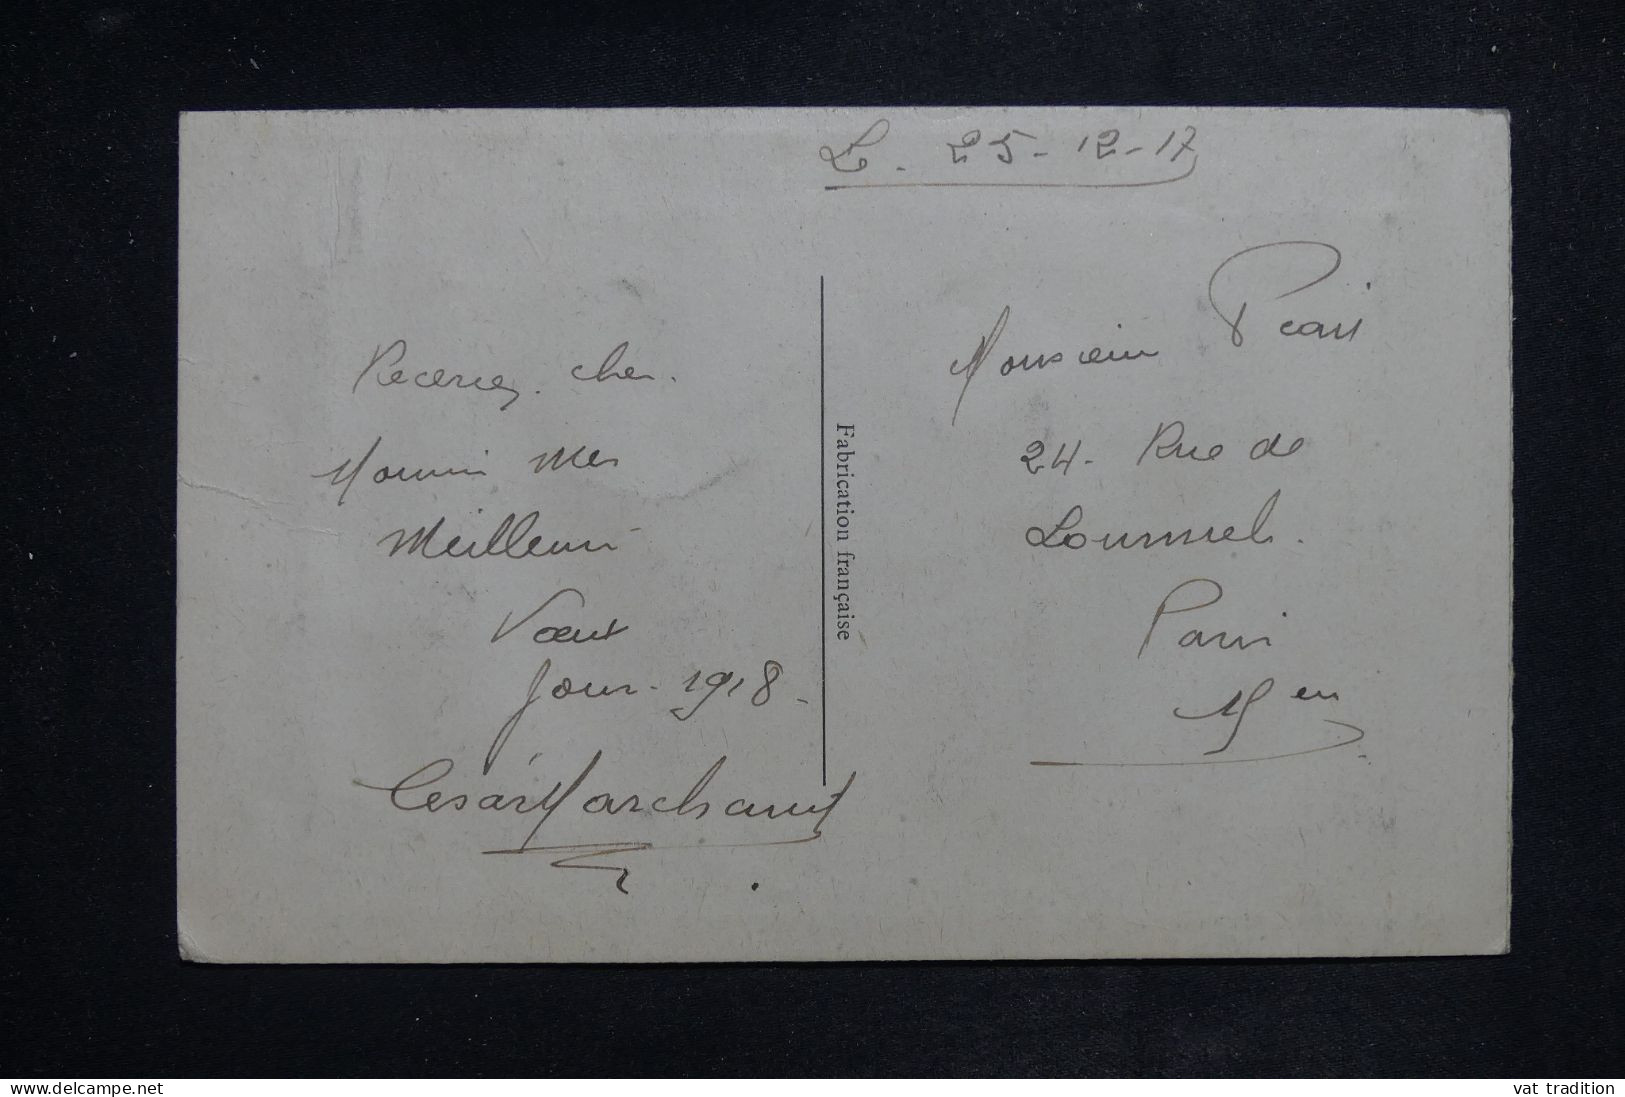 L. 25-12-17
Recevez cher
mes
Meilleurs
Vœux
pour 1918-
César Marchand
Fabrication française
Monsieur
24- Rue de
Lourmel.
Paris
15 em
www.delcampe.net
vat tradition